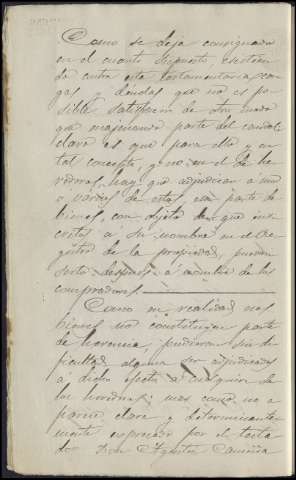 Como se deja consignado
en el cuarto supuesto, existien
do contra esta testamentaria car
gas y deudas que no es po
sible satisfacer de otro modo
que enajenando parte del caudal
claro es que para ello y en
tal concepto, y no en el de he
rederos, hay que adjudicar a uno
o varios de estos, esa parte de
bienes, con objeto de que ins
critos a su nombre en el Re
gistro de la propiedad, puedan
serlo despues a nombre de los
compradores.
Como en realidad esos
bienes no constituyen parte
de herencia, pudieran sin di
ficultad alguna ser adjudicados
a dicho efecto a cualquiera de
los herederos; mas como no a
parece clara y determinante
mente expresado por el testa
do Don Agustin